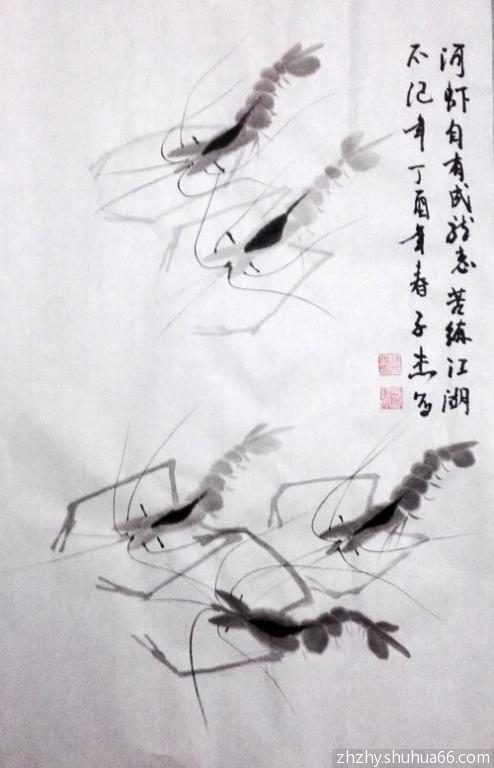 河虾自有成龙志苦练江湖
不记年丁酉年春子杰写
zhzhy.shuhua66.com